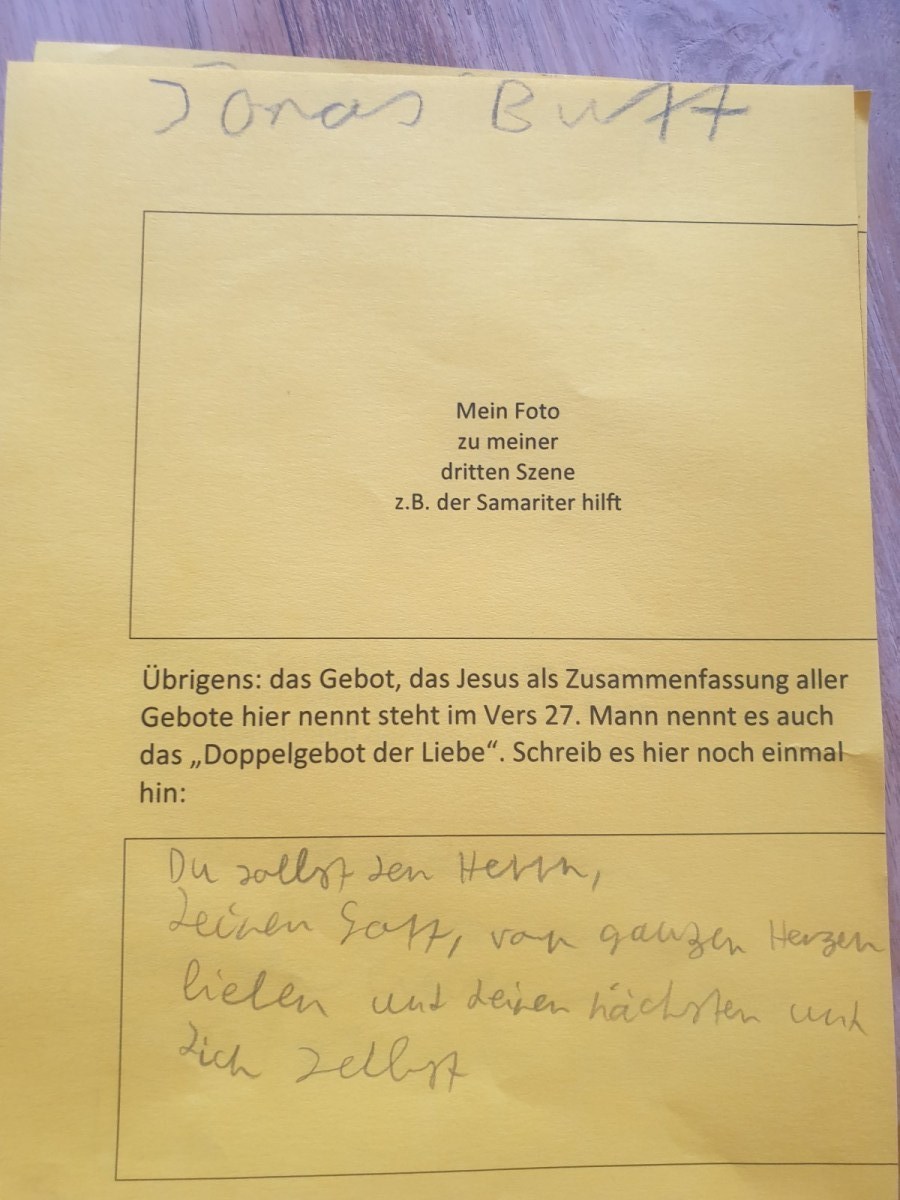 Jonas Butt
Mein Foto
zu meiner
dritten Szene
z.B. der Samariter hilft
Übrigens: das Gebot, das Jesus als Zusammenfassung aller
Gebote hier nennt steht im Vers 27. Mann nennt es auch
das „Doppelgebot der Liebe“. Schreib es hier noch einmal
hin:
Du sollst den Herrn,
deinen Gott, von ganzen Herzen
lieben und deinen nächsten und
dich selbst